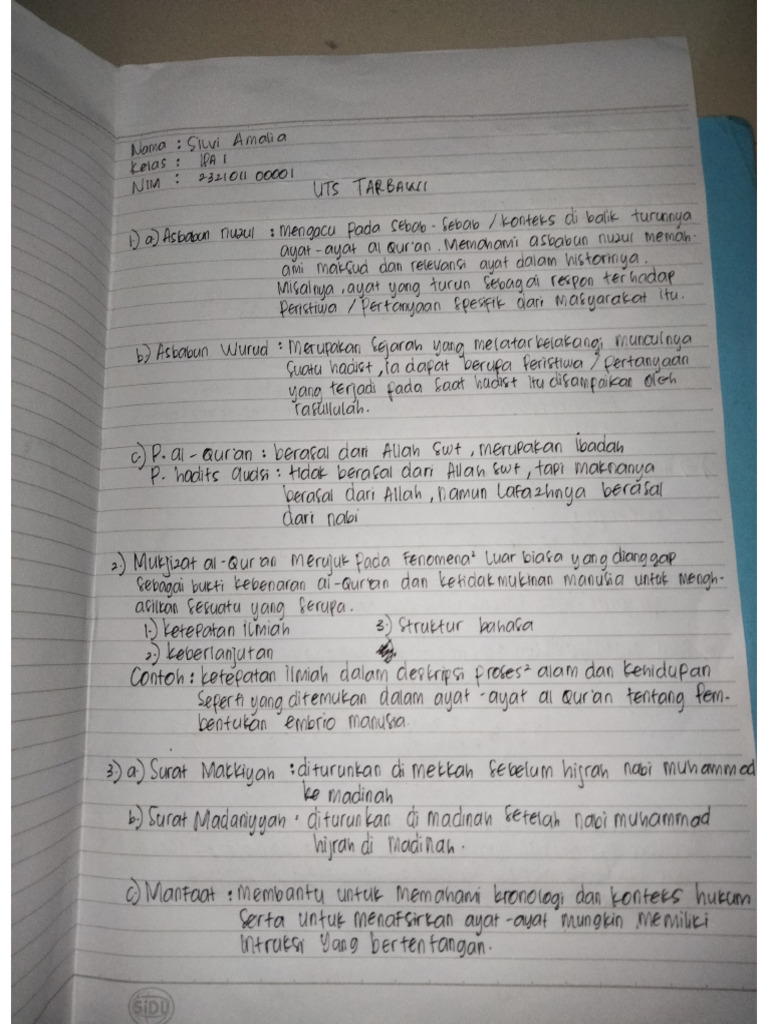 Nama : Silvi Amalia
Kelas : IPA 1
NIM : 2321011 00001
UTS TARBAWI
1) a) Asbabun nuzul : mengacu pada sebab-sebab / konteks di balik turunnya
ayat-ayat al Qur'an. Memahami asbabun nuzul memah-
ami maksud dan relevansi ayat dalam historinya.
Misalnya, ayat yang turun sebagai respon terhadap
Peristiwa / Pertanyaan spesifik dari masyarakat itu.
b) Asbabun Wurud : Merupakan sejarah yang melatarbelakangi munculnya
suatu hadist, ia dapat berupa Peristiwa / pertanyaan
yang terjadi pada saat hadist itu disampaikan oleh
rasullulah.
c) P. al-Qur'an : berasal dari Allah swt, merupakan ibadah
P. hadits qudsi : tidak berasal dari Allah swt, tapi maknanya
berasal dari Allah, namun Lafazhnya berasal
dari nabi
2.) Mukjizat al-Qur'an merujuk pada Fenomena² luar biasa yang dianggap
sebagai bukti kebenaran al-Qur'an dan ketidakmukinan manusia untuk mengh-
asilkan sesuatu yang serupa.
1.) ketepatan ilmiah 3.) Struktur bahasa
2.) keberlanjutan
Contoh : ketepatan ilmiah dalam deskripsi proses² alam dan kehidupan
Seperti yang ditemukan dalam ayat-ayat al Qur'an tentang Pem-
bentukan embrio manusia.
3.) a) Surat Makkiyah : diturunkan di mekkah sebelum hijrah nabi muhammad
ke madinah
b) Surat Madaniyyah : diturunkan di madinah setelah nabi muhammad
hijrah di Madinah.
c) Manfaat : membantu untuk memahami kronologi dan konteks hukum
Serta untuk menafsirkan ayat-ayat mungkin memiliki
Intruksi yang bertentangan.
SiDU